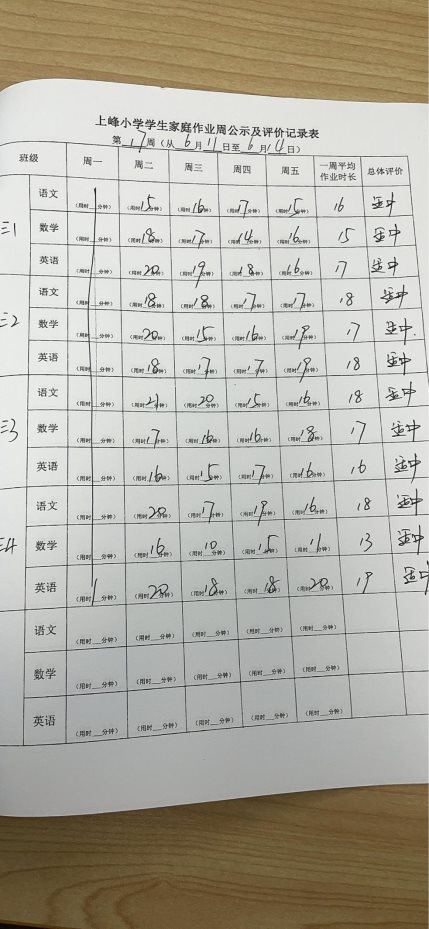 上峰小学学生家庭作业周公示及评价记录表
第 17 周（从 6 月 11 日至 6 月 14 日）
班级 周一 周二 周三 周四 周五 一周平均作业时长 总体评价
三1 语文 （用时 分钟） （用时15分钟） （用时16分钟） （用时17分钟） （用时15分钟） 16 适中
数学 （用时 分钟） （用时18分钟） （用时17分钟） （用时14分钟） （用时16分钟） 15 适中
英语 （用时 分钟） （用时20分钟） （用时19分钟） （用时18分钟） （用时16分钟） 17 适中
三2 语文 （用时 分钟） （用时18分钟） （用时18分钟） （用时17分钟） （用时17分钟） 18 适中
数学 （用时 分钟） （用时20分钟） （用时15分钟） （用时16分钟） （用时19分钟） 17 适中.
英语 （用时 分钟） （用时18分钟） （用时17分钟） （用时17分钟） （用时19分钟） 18 适中
三3 语文 （用时 分钟） （用时21分钟） （用时20分钟） （用时15分钟） （用时16分钟） 18 适中
数学 （用时 分钟） （用时17分钟） （用时16分钟） （用时16分钟） （用时18分钟） 17 适中
英语 （用时 分钟） （用时16分钟） （用时15分钟） （用时17分钟） （用时16分钟） 16 适中
三4 语文 （用时 分钟） （用时20分钟） （用时17分钟） （用时19分钟） （用时16分钟） 18 适中
数学 （用时 分钟） （用时16分钟） （用时10分钟） （用时15分钟） （用时11分钟） 13 适中
英语 （用时 分钟） （用时20分钟） （用时18分钟） （用时18分钟） （用时20分钟） 19 适中
语文 （用时 分钟） （用时 分钟） （用时 分钟） （用时 分钟） （用时 分钟）
数学 （用时 分钟） （用时 分钟） （用时 分钟） （用时 分钟） （用时 分钟）
英语 （用时 分钟） （用时 分钟） （用时 分钟） （用时 分钟） （用时 分钟）